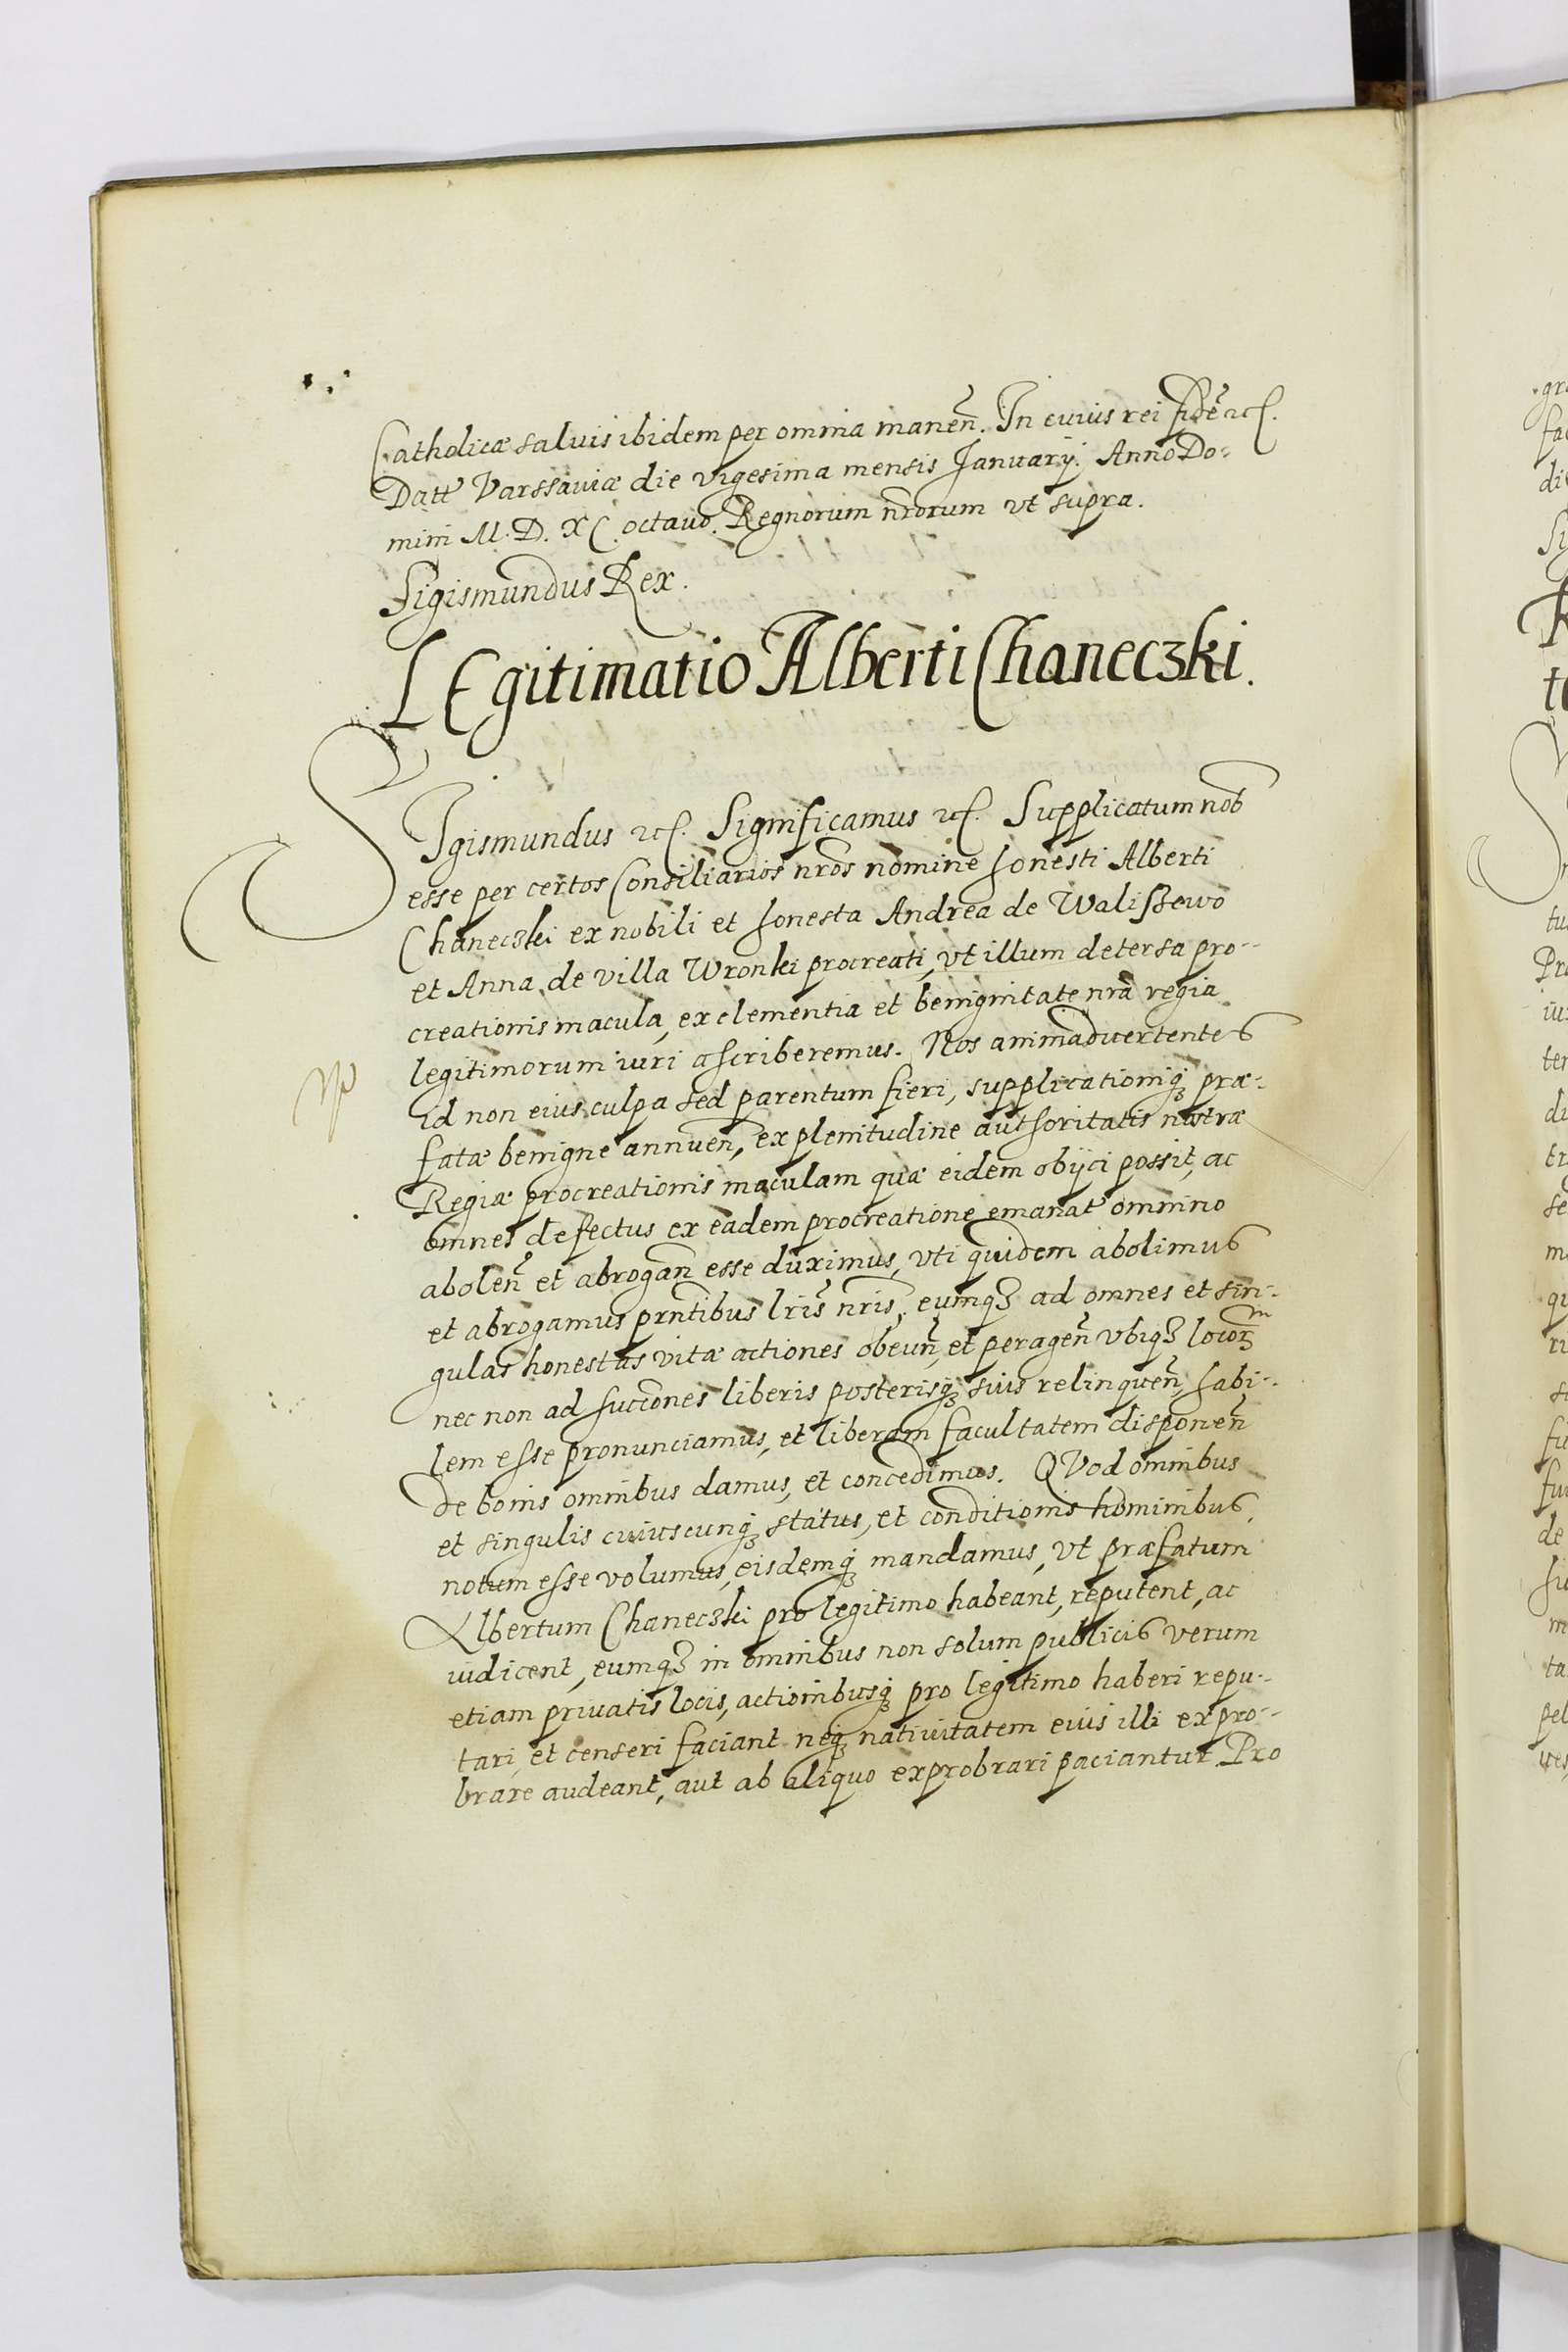 Catholicæ saluis ibidem per omnia manen̄. In cuius rei fidē etc.
Datt Varssauiæ die vigesima mensis Januarij. Anno Do-
mini M. D. XC. octauo. Regnorum nrōrum vt supra.
Sigismundus Rex.
LEgitimatio Alberti Chaneczki.
SIgismundus etc. Significamus etc. Supplicatum nob
esse per certos Consiliarios nrōs nomine honesti Alberti
Chaneczki ex nobili et honesta Andrea de Waliszewo
et Anna de villa Wronki procreati, vt illum detersa pro-
creationis macula, ex clementia et benignitate nrā regia
legitimorum iuri ascriberemus. Nos animaduertentes
id non eius culpa sed parentum fieri, supplicationiq; præ-
fatæ benigne annuen̄, ex plenitudine authoritatis nostræ
Regiæ procreationis maculam quæ eidem obijci possit, ac
omnes defectus ex eadem procreatione emanat omnino
abolen̄ et abrogan̄ esse duximus, vti quidem abolimus
et abrogamus prn̄tibus lrīs nrīs, eumq3 ad omnes et sin-
gulas honestas vitæ actiones obeun̄, et peragen̄ vbiq3 locorm̄
nec non ad succōnes liberis posterisq; suis relinquen̄, habi-
lem esse pronunciamus, et liberam facultatem disponen̄
de bonis omnibus damus, et concedimus. QVod omnibus
et singulis cuiuscunq; status, et conditionis hominibus,
notum esse volumus, eisdemq; mandamus, vt præfatum
Albertum Chaneczki pro legitimo habeant, reputent, ac
iudicent, eumq3 in omnibus non solum publicis verum
etiam priuatis locis, actionibusq; pro legitimo haberi repu-
tari, et censeri faciant neq; natiuitatem eius illi expro-
brare audeant, aut ab aliquo exprobrari paciantur. Pro